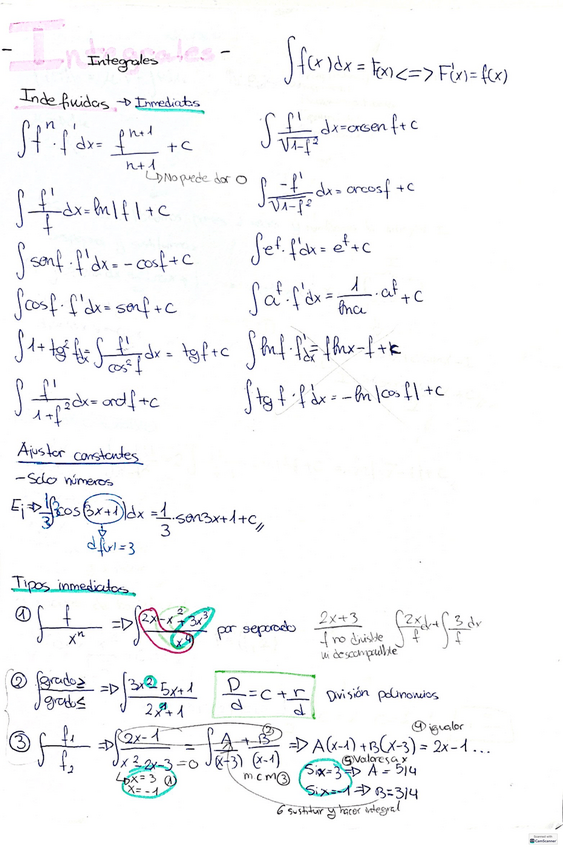 - Integrales -
Integrales
∫f(x)dx = F(x) <=> F'(x) = f(x)
Indefinidas → Inmediatas
∫fⁿ · f' dx = fⁿ⁺¹ / n+1 + c
↳ No puede dar 0
∫ f'/f dx = ln|f| + c
∫senf · f' dx = -cosf + c
∫cosf · f' dx = senf + c
∫1+tg²f · f' dx = ∫ f'/cos²f dx = tgf + c
∫ f'/1+f² dx = arctf + c
∫ f'/√1-f² dx = arcsen f + c
∫ -f'/√1-f² dx = arcosf + c
∫eᶠ · f' dx = eᶠ + c
∫aᶠ · f' dx = 1/lna · aᶠ + c
∫lnf · f' dx = flnx - f + k
∫tgf · f' dx = -ln|cosf| + c
Ajustar constantes
- Solo números
Ej ⇒ 1/3 ∫3cos(3x+1)dx = 1/3 · sen3x+1 + c,,
df(x) = 3
Tipos inmediatos
① ∫ f/xⁿ ⇒ ∫ 2x - x² + 3x³ / x⁴ por separado
2x+3 / f no divisible ni descomponible ∫ 2x/f dx + ∫ 3/f dx
② ∫ grado≥ / grado≤ ⇒ ∫ 3x² 5x+1 / 2x¹+1 D/d = c + r/d División polinomios
③ ∫ f₁/f₂ ⇒ ∫ 2x-1 / x²-2x-3=0 = ∫ A/(x-3) + B/(x-1) ② ⇒ A(x-1) + B(x-3) = 2x-1 ...
④ igualar
↳ x=3 ①
x=-1
mcm ③
⑤ valores a x
Si x=3 ⇒ A = 5/4
Si x=-1 ⇒ B = 3/4
6 sustituir y hacer integral
CamScanner